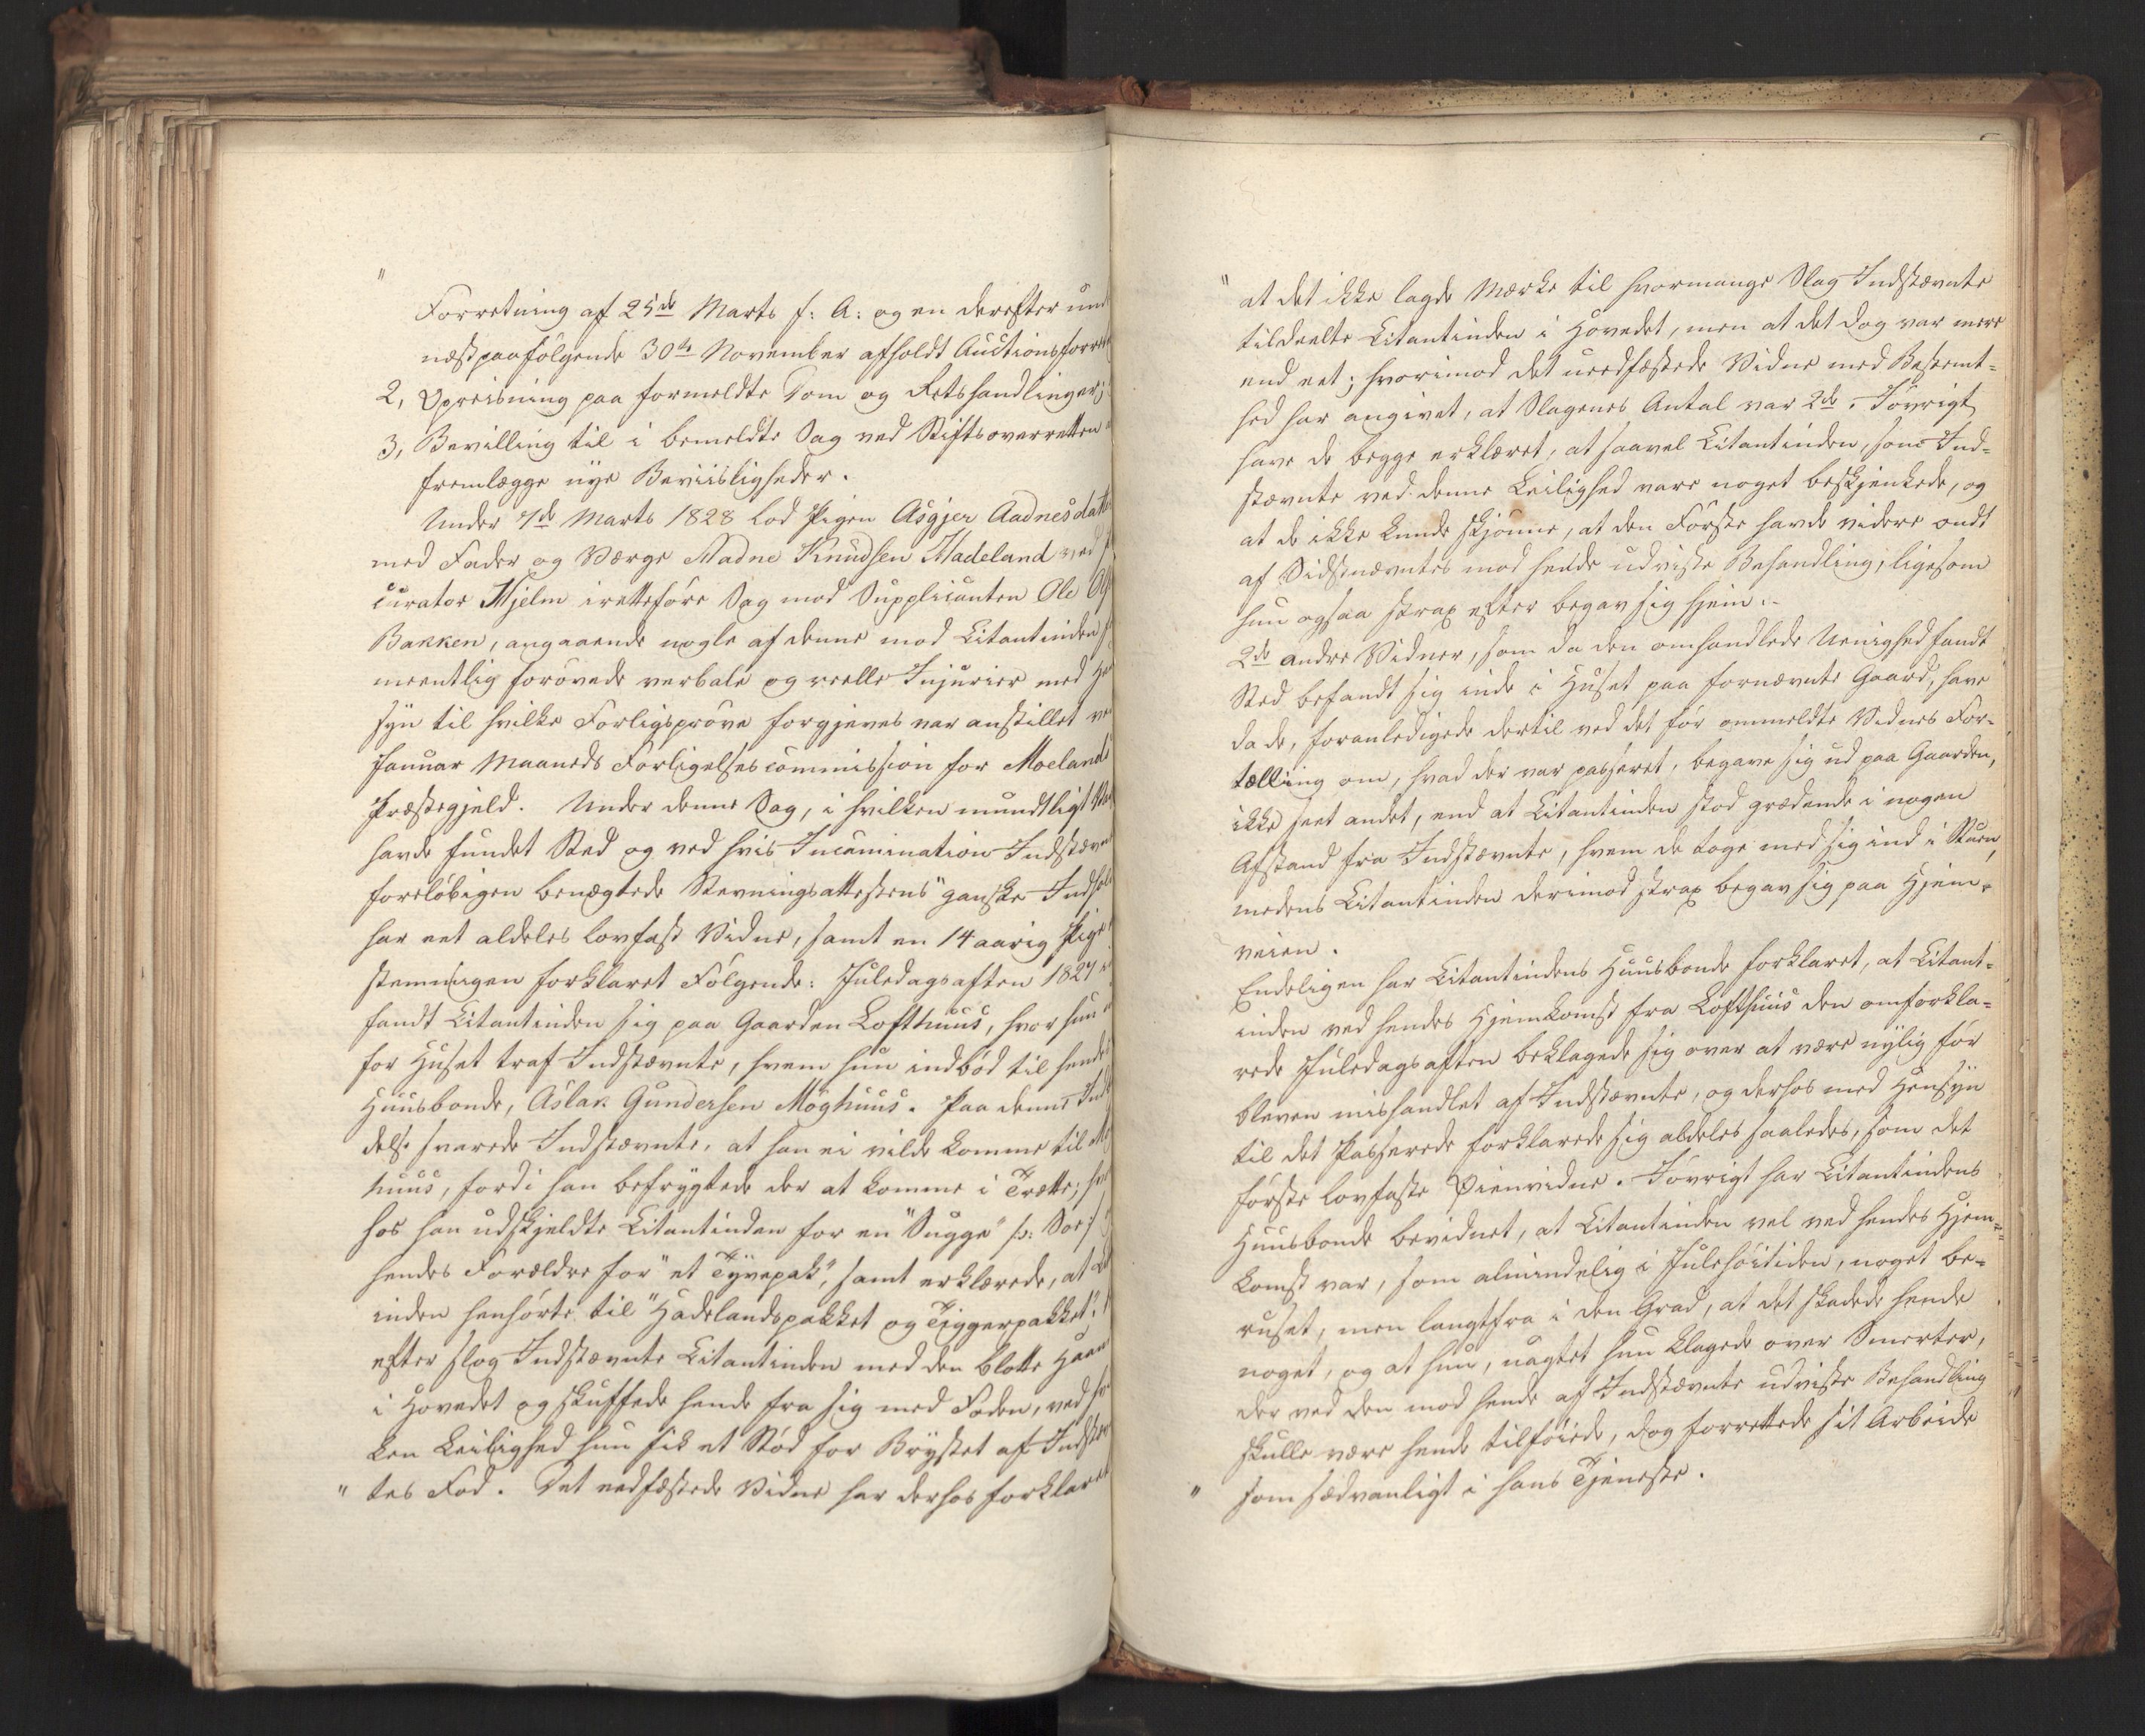 "
Forretning af 25de Marts f: A: og en derefter
næstpaafølgende 30te November afholdt
2, Opreisning paa formeldte Dom og Retshandlinger;
3, Bevilling til i bemeldte Sag ved Stiftsoverretten
fremlægge nye Beviisligheder.
Under 7de Marts 1828 lod Pigen Asgjer
med Fader og Værge Aadne Knudsen Hadeland ved
curator Hjelm iretteføre Sag mod Supplicanten Ole
Bakken, angaaende nogle af denne mod Citantinden
meentlig forøvede verbale og reelle Injurier med
syn til hvilke Forligsprøve forgjeves var anstillet
Januar Maaneds Forligelsescommission for Moelands
Præstegjeld. Under denne Sag, i hvilken mundtligt
havde fundet Sted og ved hvis Incamination
foreløbigen benægtede Stevningsattestens "ganske
har eet aldeles lovfast Vidne, samt en 14 aarig Pige
stemmigen forklaret Følgende: Juledagsaften 1827
fandt Citantinden sig paa Gaarden Lofthuus, hvor hun
for Huset traf Indstævnte, hvem hun indbød til
Huusbonde, Aslak Gundersen Møghuus. Paa denne
delse svarede Indstævnte, at han ei vilde komme til
huus, fordi han befrygtede der at komme i Trætte;
hos han udskjeldte Citantinden for en "Sugge" /:
hendes Forældre for "et Tyvepak", samt erklærede, at
inden henhørte til "Hadelandspakket og Tiggerpakket".
efter slog Indstævnte Citantinden med den blotte
i Hovedet og skuffede hende fra sig med Foden, ved
ken Leilighed hun fik et Stød for Brystet af
" tes Fod. Det eedfæstede Vidne har derhos forklaret
" at det ikke lagde Mærke til hvormange Slag Indstævnte
tildeelte Citantinden i Hovedet, men at det dog var mere
end eet; hvorimod det ueedfæstede Vidne med Bestemt-
hed har angivet, at Slagenes Antal var 2de. Iøvrigt
have de begge erklæret, at saavel Citantinden, som Ind-
stævnte ved denne Leilighed vare noget beskjenkede, og
at de ikke kunde skjønne, at den Første havde videre ondt
af Sidstnævntes mod hende udviste Behandling, ligesom
hun ogsaa strax efter begav sig hjem.-
2de andre Vidner, som da den omhandlede Uenighed fandt
Sted befandt sig inde i Huset paa fornævnte Gaard, have
da de, foranledigede dertil ved det før ommeldte Vidnes For-
tælling om, hvad der var passeret, begave sig ud paa Gaarden,
ikke seet andet, end at Citantinden stod grædende i nogen
Afstand fra Indstævnte, hvem de toge med sig ind i Stuen,
medens Citantinden derimod strax begav sig paa Hjem-
veien.
Endeligen har Citantindens Huusbonde forklaret, at Citant-
inden ved hendes Hjemkomst fra Lofthuus den omforkla-
rede Juledagsaften beklagede sig over at være nylig før
bleven mishandlet af Indstævnte, og derhos med Hensyn
til det Passerede forklarede sig aldeles saaledes, som det
første lovfaste Øienvidne. Iøvrigt har Citantindens
Huusbonde bevidnet, at Citantinden vel ved hendes Hjem-
komst var, som almindelig i Julehøitiden, noget be-
ruset, men langtfra i den Grad, at det skadede hende
noget, og at hun, uagtet hun klagede over Smerter,
der ved den mod hende af Indstævnte udviste Behandling
skulle være hende tilføiede, dog forrettede sit Arbeide
" som sædvanligt i hans Tjeneste.